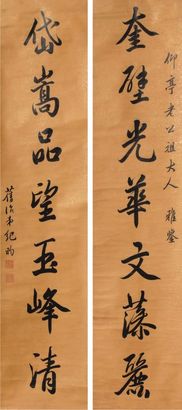 仰亭老公祖大人 雅鉴
奎璧光華文藻麗
岱嵩品望玉峰清
舊治弟紀昀